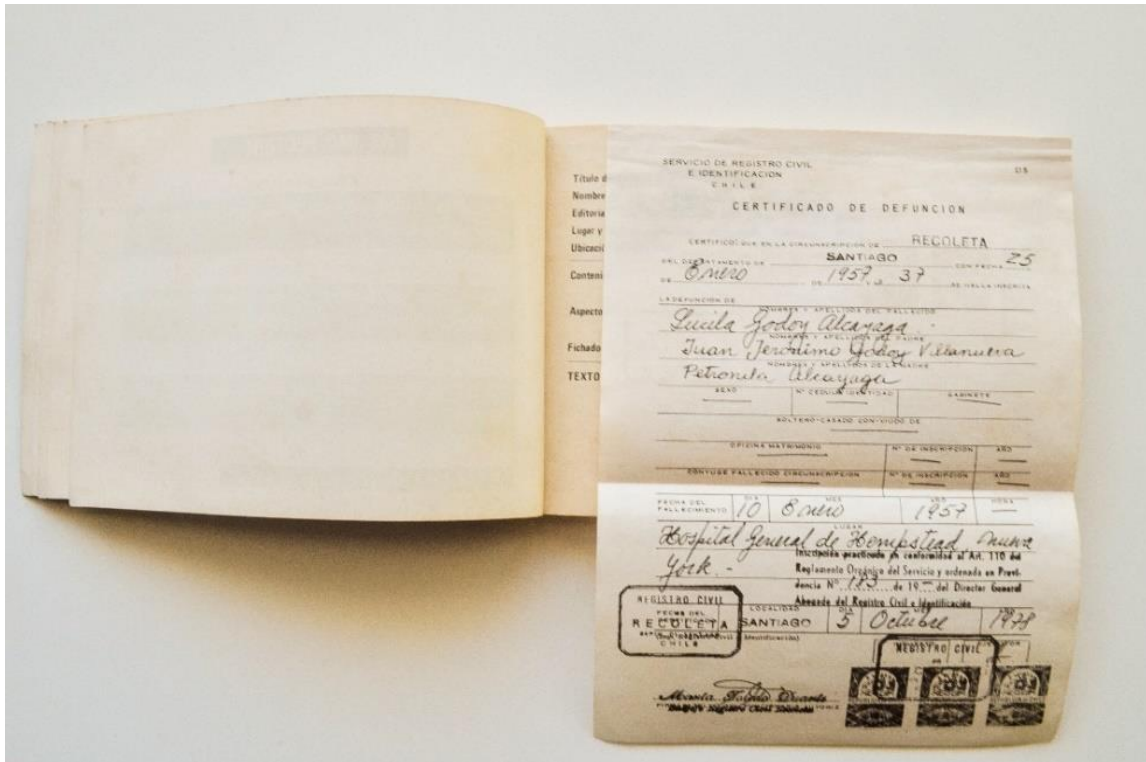 Título d
Nombre
Editoria
Lugar y
Ubicaci
Conteni
Aspecto
Fichado
TEXTO
SERVICIO DE REGISTRO CIVIL
E IDENTIFICACION
CHILE
CERTIFICADO DE DEFUNCION
CERTIFICO: QUE EN LA CIRCUNSCRIPCION DE RECOLETA
DEL DEPARTAMENTO DE SANTIAGO CON FECHA 25
DE Enero DE 1957 37 SE HALLA INSCRITA
LA DEFUNCION DE
NOMBRES Y APELLIDOS DEL FALLECIDO
Lucila Godoy Alcayaga.-
NOMBRES Y APELLIDOS DEL PADRE
Juan Jerónimo Godoy Villanueva
NOMBRES Y APELLIDOS DE LA MADRE
Petronila Alcayaga
SEXO Nº CEDULA IDENTIDAD GABINETE
SOLTERO-CASADO CON-VIUDO DE
OFICINA MATRIMONIO Nº DE INSCRIPCION AÑO
CONYUGE FALLECIDO CIRCUNSCRIPCION Nº DE INSCRIPCION AÑO
FECHA DEL FALLECIMIENTO DIA 10 MES Enero AÑO 1957 HORA
LUGAR
Hospital General de Hempstead, nueva
York.-
Inscripción practicada en conformidad al Art. 110 del
Reglamento Orgánico del Servicio y ordenada en Provi-
dencia Nº 183 de 19 del Director General
Abogado del Registro Civil e Identificación
REGISTRO CIVIL
RECOLETA
CHILE
LOCALIDAD SANTIAGO DIA 5 Octubre AÑO 1978
REGISTRO CIVIL